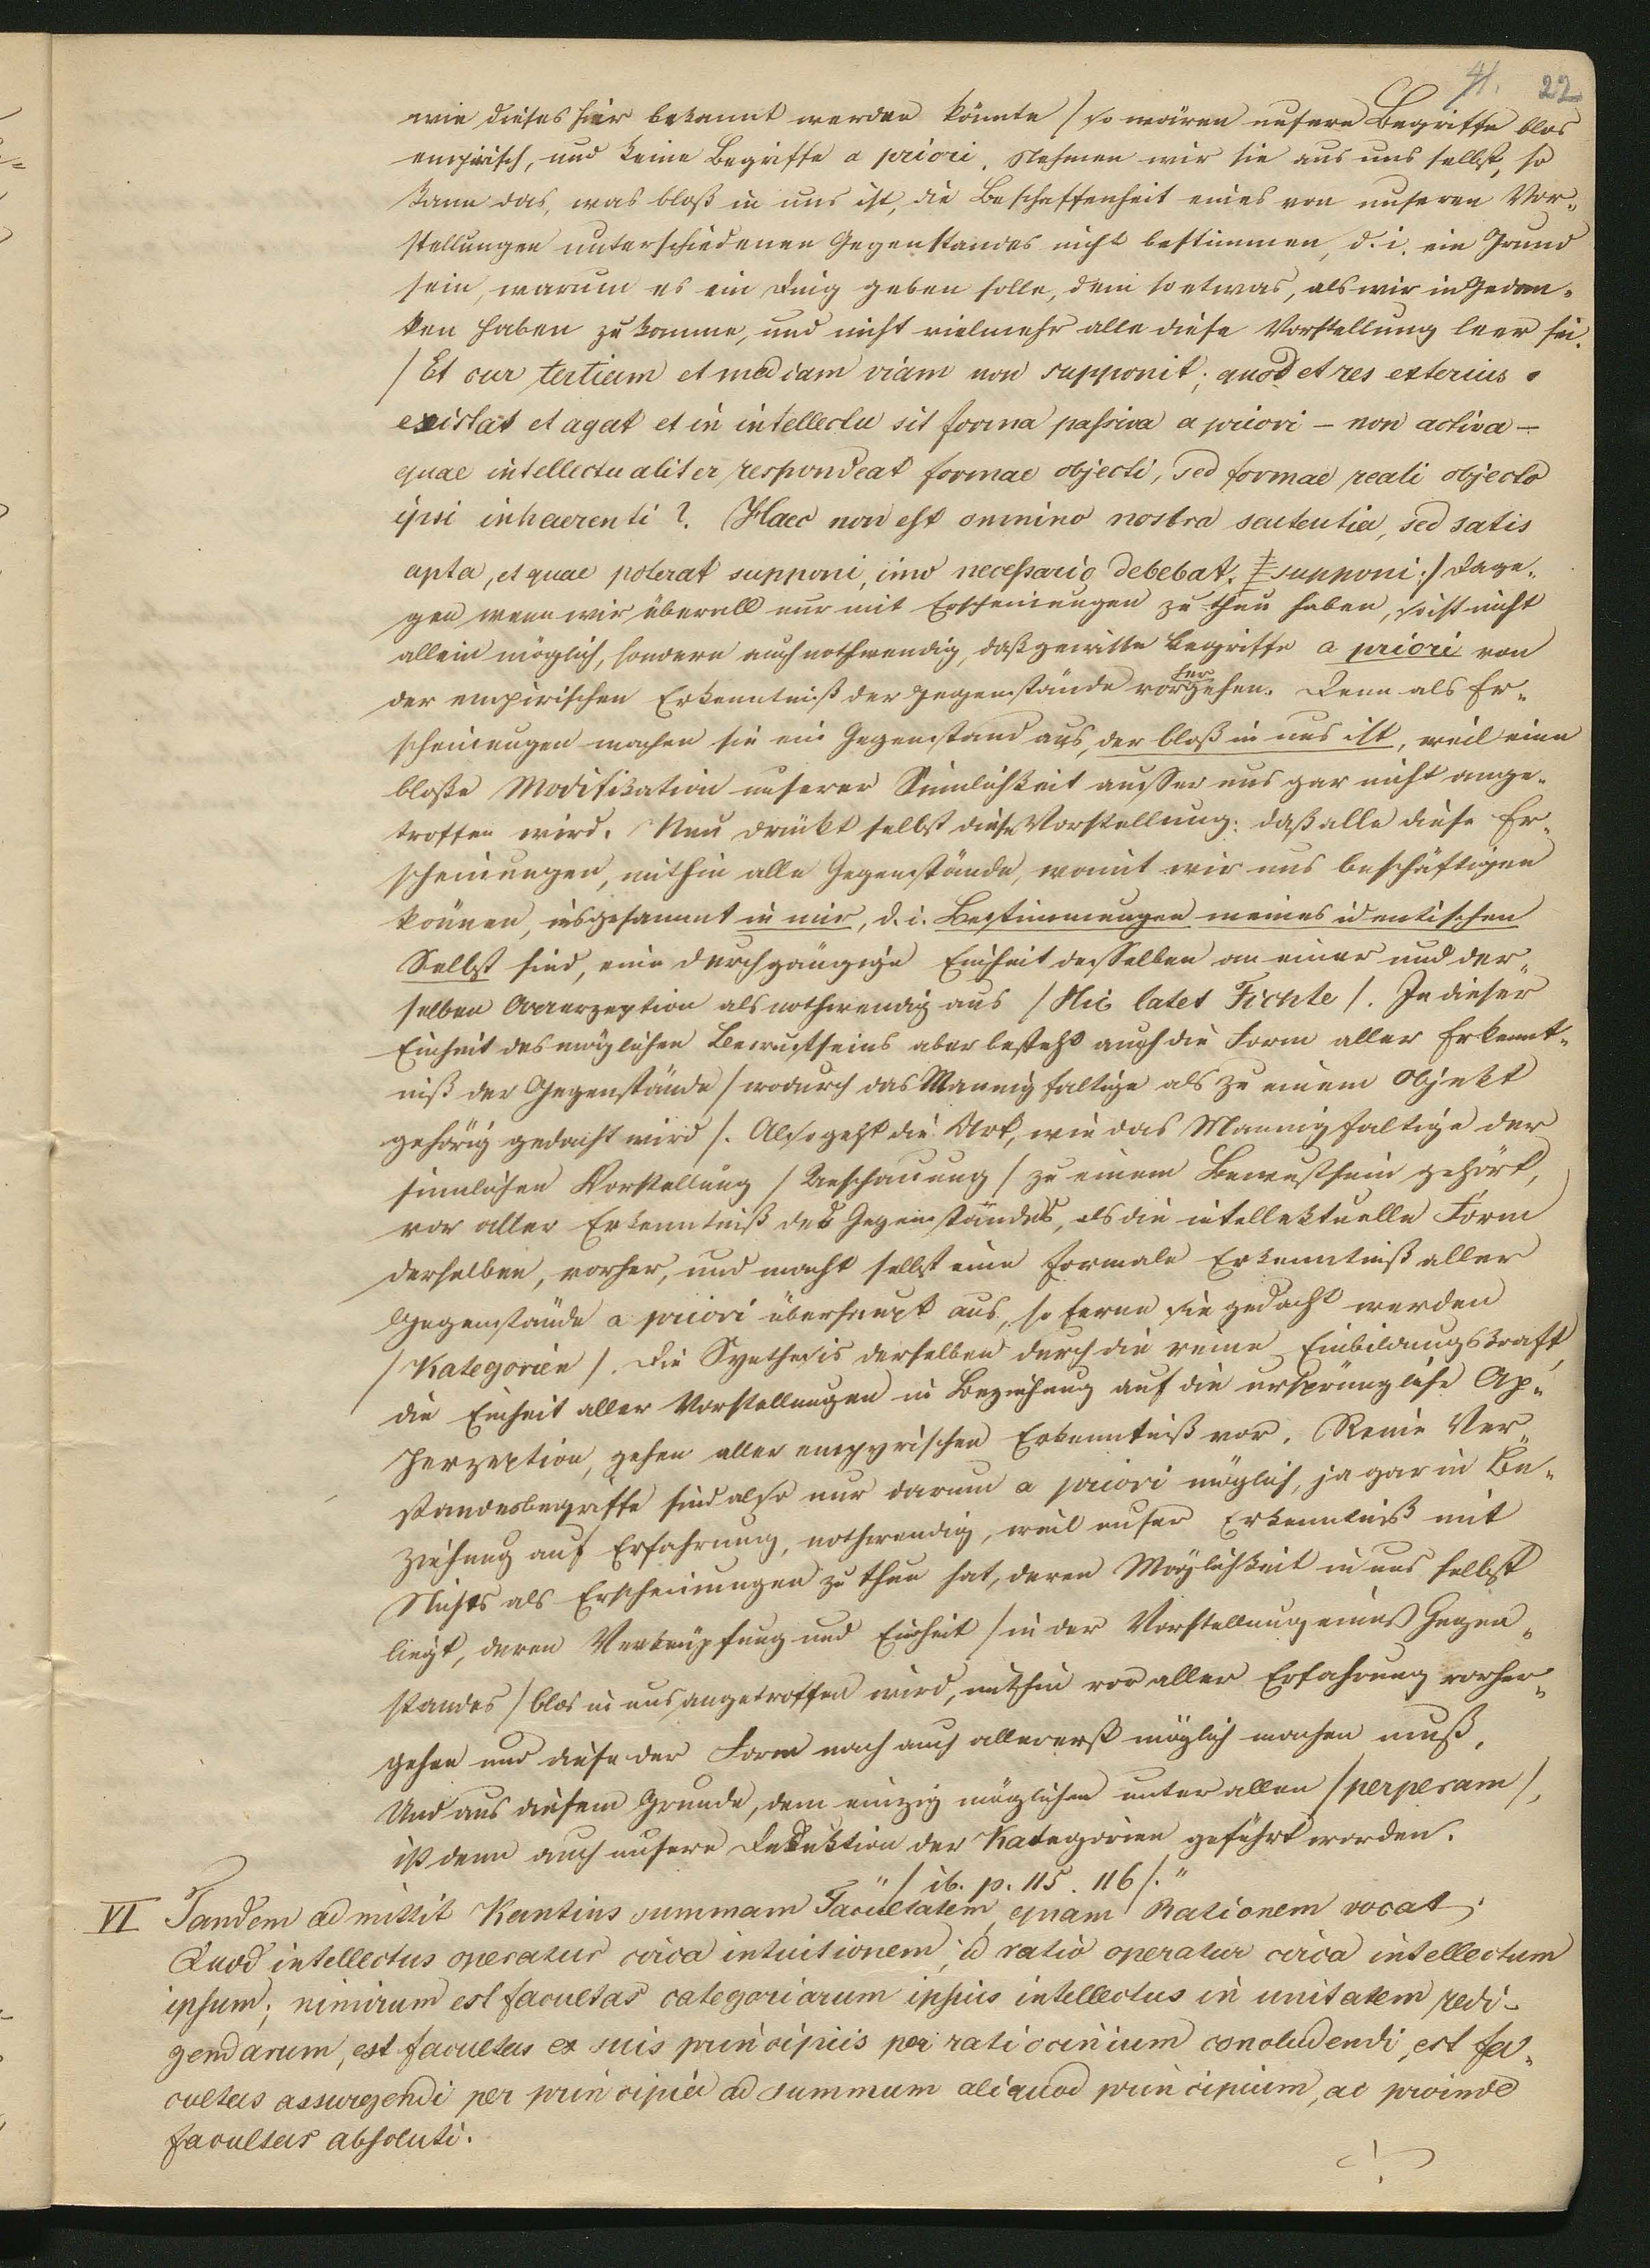 41. 22
wie dieses hier bekannt werden könnte / so wären unsere Begriffe blos
empirisch, und keine Begriffe a priori. Nehmen wir sie aus uns selbst, so
kann das, was bloß in uns ist, die Beschaffenheit eines von unseren Vor-
stellungen unterschiedenen Gegenstandes nicht bestimmen, d. i. ein Grund
sein, warum es ein Ding geben solle, dem so etwas, als wir in Gedan-
ken haben zukomme, und nicht vielmehr alle diese Vorstellung leer sei.
/ Et cur tertiam et mediam viam non supponit; quod et res exterius
existat et agat et in intellectu sit forma passiva a priori – non activa –
quae intellectualiter respondeat formae objecti, sed formae reali objecto
ipsi inhaerenti? Haec non est omnino nostra sententia, sed satis
apta, et quae poterat supponi, imo necessario debebat supponi:/ Dage-
gen wenn wir überall nur mit Erscheinungen zu thun haben, so ist nicht
allein möglich, sondern auch nothwendig, daß gewisse Begriffe a priori von
der empirischen Erkenntniß der Gegenstände vorhergehen. Denn als Er-
scheinungen machen sie ein Gegenstand aus, der bloß in uns ist, weil eine
bloße Modifikation unserer Sinnlichkeit ausser uns gar nicht ange-
troffen wird. Nun drückt selbst diese Vorstellung: daß alle diese Er-
scheinungen, mithin alle Gegenstände, womit wir uns beschäftigen
können, insgesammt in mir, d. i. Bestimmungen meines identischen
Selbst sind, eine durchgängige Einheit desselben an einer und der-
selben Apperzeption als nothwendig aus / Hic latet Fichte /. In dieser
Einheit des möglichen Bewustseins aber besteht auch die Form aller Erkennt-
niß der Gegenstände / wodurch das Mannigfaltige als zu einem Objekt
gehörig gedacht wird /. Also geht die Art, wie das Mannigfaltige der
sinnlichen Vorstellung / Anschauung / zu einem Bewustsein gehört,
vor aller Erkenntniß des Gegenstandes, als die intellektuelle Form
derselben, vorher, und macht selbst eine formale Erkenntniß aller
Gegenstände a priori überhaupt aus, so ferne sie gedacht werden
/ Kategorien /. Die Synthesis derselben durch die reine Einbildungskraft,
die Einheit aller Vorstellungen in Beziehung auf die ursprüngliche Ap-
perzeption, gehen aller empyrischen Erkenntniß vor. Reine Ver-
standesbegriffe sind also nur darum a priori möglich, ja gar in Be-
ziehung auf Erfahrung, nothwendig, weil unser Erkenntniß mit
Nichts als Erscheinungen zu thun hat, deren Möglichkeit in uns selbst
liegt, deren Verknüpfung und Einheit / in der Vorstellung eines Gegen-
standes / blos in uns angetroffen wird, mithin vor aller Erfahrung vorher-
gehen und diese der Form nach auch allererst möglich machen muß.
Und aus diesem Grunde, dem einzig möglichen unter allen / perperam /,
ist denn auch unsere Deduktion der Kategorien geführt worden.
" / ib. p. 115. 116 /."
VI Tandem admittit Kantius summam Facultatem, quam Rationem vocat;
Quod intellectus operatur circa intuitionem, id ratio operatur circa intellectum
ipsum; nimirum est facultas categoriarum ipsius intellectus in unitatem redi-
gendarum, est facultas ex suis principiis per ratiocinium concludendi, est fa-
cultas assurgendi per principia ad summum aliquod principium, ac proinde
facultas absoluti.